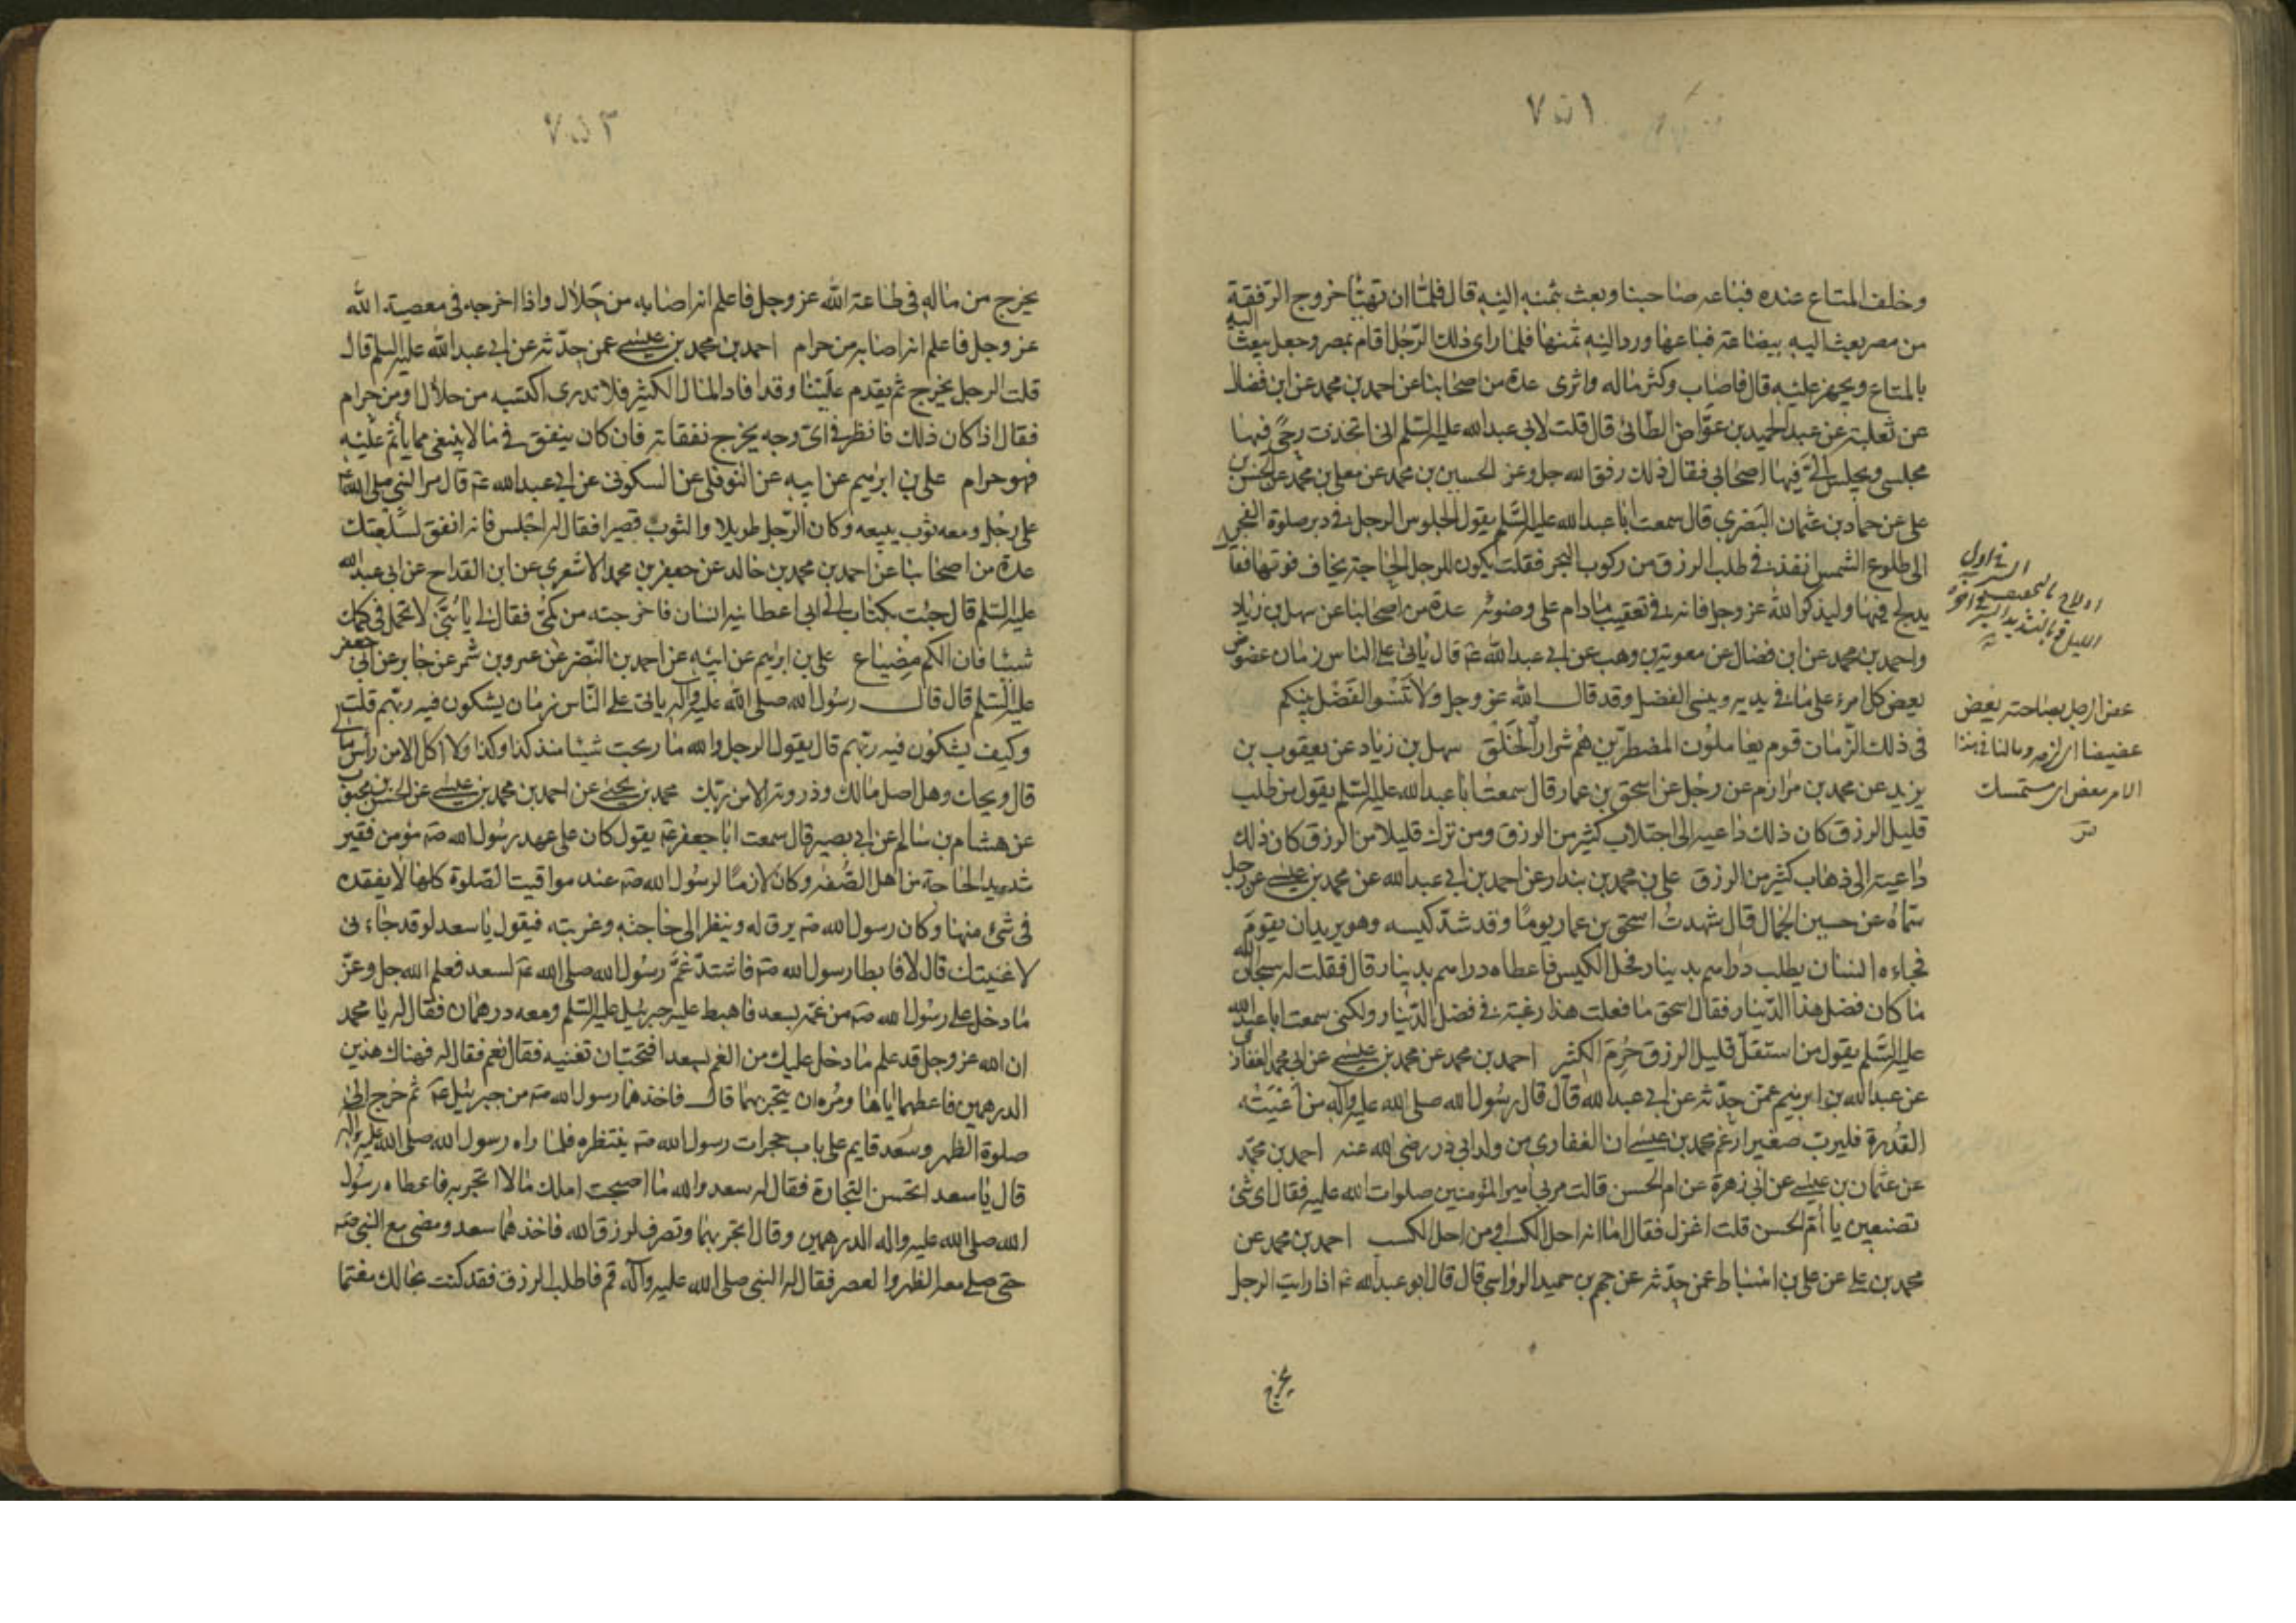 ٧٥١
وخلف المتاع عنده فباعه صاحبنا وبعث بثمنه اليه قال فلما ان تهيّأ خروج الرفقة
من مصر بعث اليه ببضاعة فباعها ورد اليه ثمنها فلما راى ذلك الرّجل اقام بمصر وجعل يبعث اليه
بالمتاع ويجهز عليه قال فاصاب وكثر ماله واثرى عدة من اصحابنا عن احمد بن محمد عن ابن فضال
عن ثعلبة عن عبد الحميد بن عوّاض الطّائى قال قلت لابى عبد الله عليه السّلم انى اتخذت رحىً فيها
مجلسى ويجلس الىّ فيها اصحابى فقال ذلك رفق الله جل وعز الحسين بن محمد عن معلى بن محمد عن الحسن بن
على عن حماد بن عثمان البصرى قال سمعت ابا عبد الله عليه السّلم يقول لجلوس الرجل فى دبر صلوة الفجر
الى طلوع الشمس انفذ فى طلب الرزق من ركوب البحر فقلت يكون للرجل الحاجة يخاف فوتها فقال
يدلج فيها وليذكر الله عز وجل فانه فى تعقيب مادام على وضوئه عدة من اصحابنا عن سهل بن زياد
واحمد بن محمد عن ابن فضال عن معوية بن وهب عن ابى عبد الله ع قال ياتى على الناس زمان عضوض
يعض كل امرء على ما فى يديه وينسى الفضل وقد قال الله عز وجل ولا تنسوا الفضل بينكم
فى ذلك الزّمان قوم يعاملون المضطرّين هم شرار الخلق سهل بن زياد عن يعقوب بن
يزيد عن محمد بن مرازم عن رجل عن اسحق بن عمار قال سمعت ابا عبد الله عليه السّلم يقول من طلب
قليل الرزق كان ذلك داعيه الى اجتلاب كثير من الرزق ومن ترك قليلا من الرزق كان ذلك
داعيته الى ذهاب كثير من الرزق على بن محمد بن بندار عن احمد بن ابى عبد الله عن محمد بن عيسى عن رجل
سمّاه عن حسين الجمال قال شهدت اسحق بن عمار يومًا وقد شدّ كيسه وهو يريد ان يقوم
فجاءه انسان يطلب دراهم بدينار فحل الكيس فاعطاه دراهم بدينار قال فقلت له سبحان الله
ما كان فضل هذا الدّينار فقال اسحق ما فعلت هذا رغبة فى فضل الدّينار ولكنى سمعت ابا عبد الله
عليه السّلم يقول من استقلّ قليل الرزق حُرم الكثير احمد بن محمد عن محمد بن عيسى عن ابى محمد الغفارى
عن عبد الله بن ابرهيم عمّن حدّثه عن ابى عبد الله قال قال رسول الله صلى الله عليه وآله من اعيته
القدرة فليربّ صغيرا زعم محمد بن عيسى ان الغفارى من ولد ابى ذر رضى الله عنه احمد بن محمد
عن عثمان بن عيسى عن ابى زهرة عن ام الحسن قالت مر بى امير المؤمنين صلوات الله عليه فقال اى شئ
تصنعين يا أمّ الحسن قلت اغزل فقال اما انه احل الكسب او من احل الكسب احمد بن محمد عن
محمد بن على عن على بن اسباط عمن حدّثه عن جهم بن حميد الرواسى قال قال ابو عبد الله ع اذا رايت الرجل
يخرج
ادلاج بالتخفيف السير فى اول
الليل وبالتشديد السير فى آخره
عض الرجل بصاحبه يعض
عضيضا اى لزمه ومالنا فى هذا
الامر معض اى مستمسك
٧٥٢
يخرج من ماله فى طاعة الله عز وجل فاعلم انه اصابه من حلال واذا اخرجه فى معصية الله
عز وجل فاعلم انه اصابه من حرام احمد بن محمد بن عيسى عمن حدّثه عن ابى عبد الله عليه السلم قال
قلت الرجل يخرج ثم يقدم علينا وقد افاد المال الكثير فلا تدرى اكتسبه من حلال او من حرام
فقال اذا كان ذلك فانظر فى اىّ وجه يخرج نفقاته فان كان ينفق فى ما لا ينبغى مما يأثم عليه
فهو حرام على بن ابرهيم عن ابيه عن النوفلى عن السكونى عن ابى عبد الله ع قال مر النبى صلى الله عليه
على رجل ومعه ثوب يبيعه وكان الرّجل طويلا والثوب قصيرا فقال له اجلس فانه انفق لسلعتك
عدة من اصحابنا عن احمد بن محمد بن خالد عن جعفر بن محمد الاشعرى عن ابن القداح عن ابى عبد الله
عليه السّلم قال جئت بكتاب الى ابى اعطانيه انسان فاخرجته من كمّى فقال لى يا بُنىّ لا تحمل فى كمك
شيئا فان الكم مضياع على بن ابرهيم عن ابيه عن احمد بن النّضر عن عمرو بن شمر عن جابر عن ابى جعفر
عليه السّلم قال قال رسول الله صلى الله عليه وآله ياتى على النّاس زمان يشكون فيه ربّهم قلت
وكيف يشكون فيه ربّهم قال يقول الرجل والله ما ربحت شيئا منذ كذا وكذا ولا آكل الا من رأس مالى
قال ويحك وهل اصل مالك وذروته الا من ربّك محمد بن يحيى عن احمد بن محمد بن عيسى عن الحسن بن محبوب
عن هشام بن سالم عن ابى بصير قال سمعت ابا جعفر ع يقول كان على عهد رسول الله ص مؤمن فقير
شديد الحاجة من اهل الصّفه وكان لازمًا لرسول الله ص عند مواقيت الصّلوة كلها لا يفقده
فى شئ منها وكان رسول الله ص يرق له وينظر الى حاجته وغربته فيقول يا سعد لو قد جاءنى
لاغنيتك قال لا فابطا رسول الله ص فاشتدّ غمّ رسول الله صلى الله ع لسعد فعلم الله جل وعزّ
ما دخل على رسول الله ص من غمّه بسعد فاهبط عليه جبرئيل عليه السّلم ومعه درهمان فقال له يا محمد
ان الله عز وجل قد علم ما دخل عليك من الغم بسعد افتحبّ ان تغنيه فقال نعم فقال له فهناك هذين
الدرهمين فاعطهما اياها ومُره ان يتجر بهما قال فاخذهما رسول الله ص من جبرئيل ع ثم خرج الى
صلوة الظهر وسعد قايم على باب حجرات رسول الله ص ينتظره فلما راه رسول الله صلى الله عليه وآله
قال يا سعد اتحسن التجارة فقال له سعد والله ما اصبحت املك مالا اتجر به فاعطاه رسول
الله صلى الله عليه واله الدرهمين وقال اتجر بهما وتصرف لرزق الله فاخذهما سعد ومضى مع النبى ص
حتى صلى معه الظهر والعصر فقال له النبى صلى الله عليه وآله قم فاطلب الرزق فقد كنت بحالك مغتما